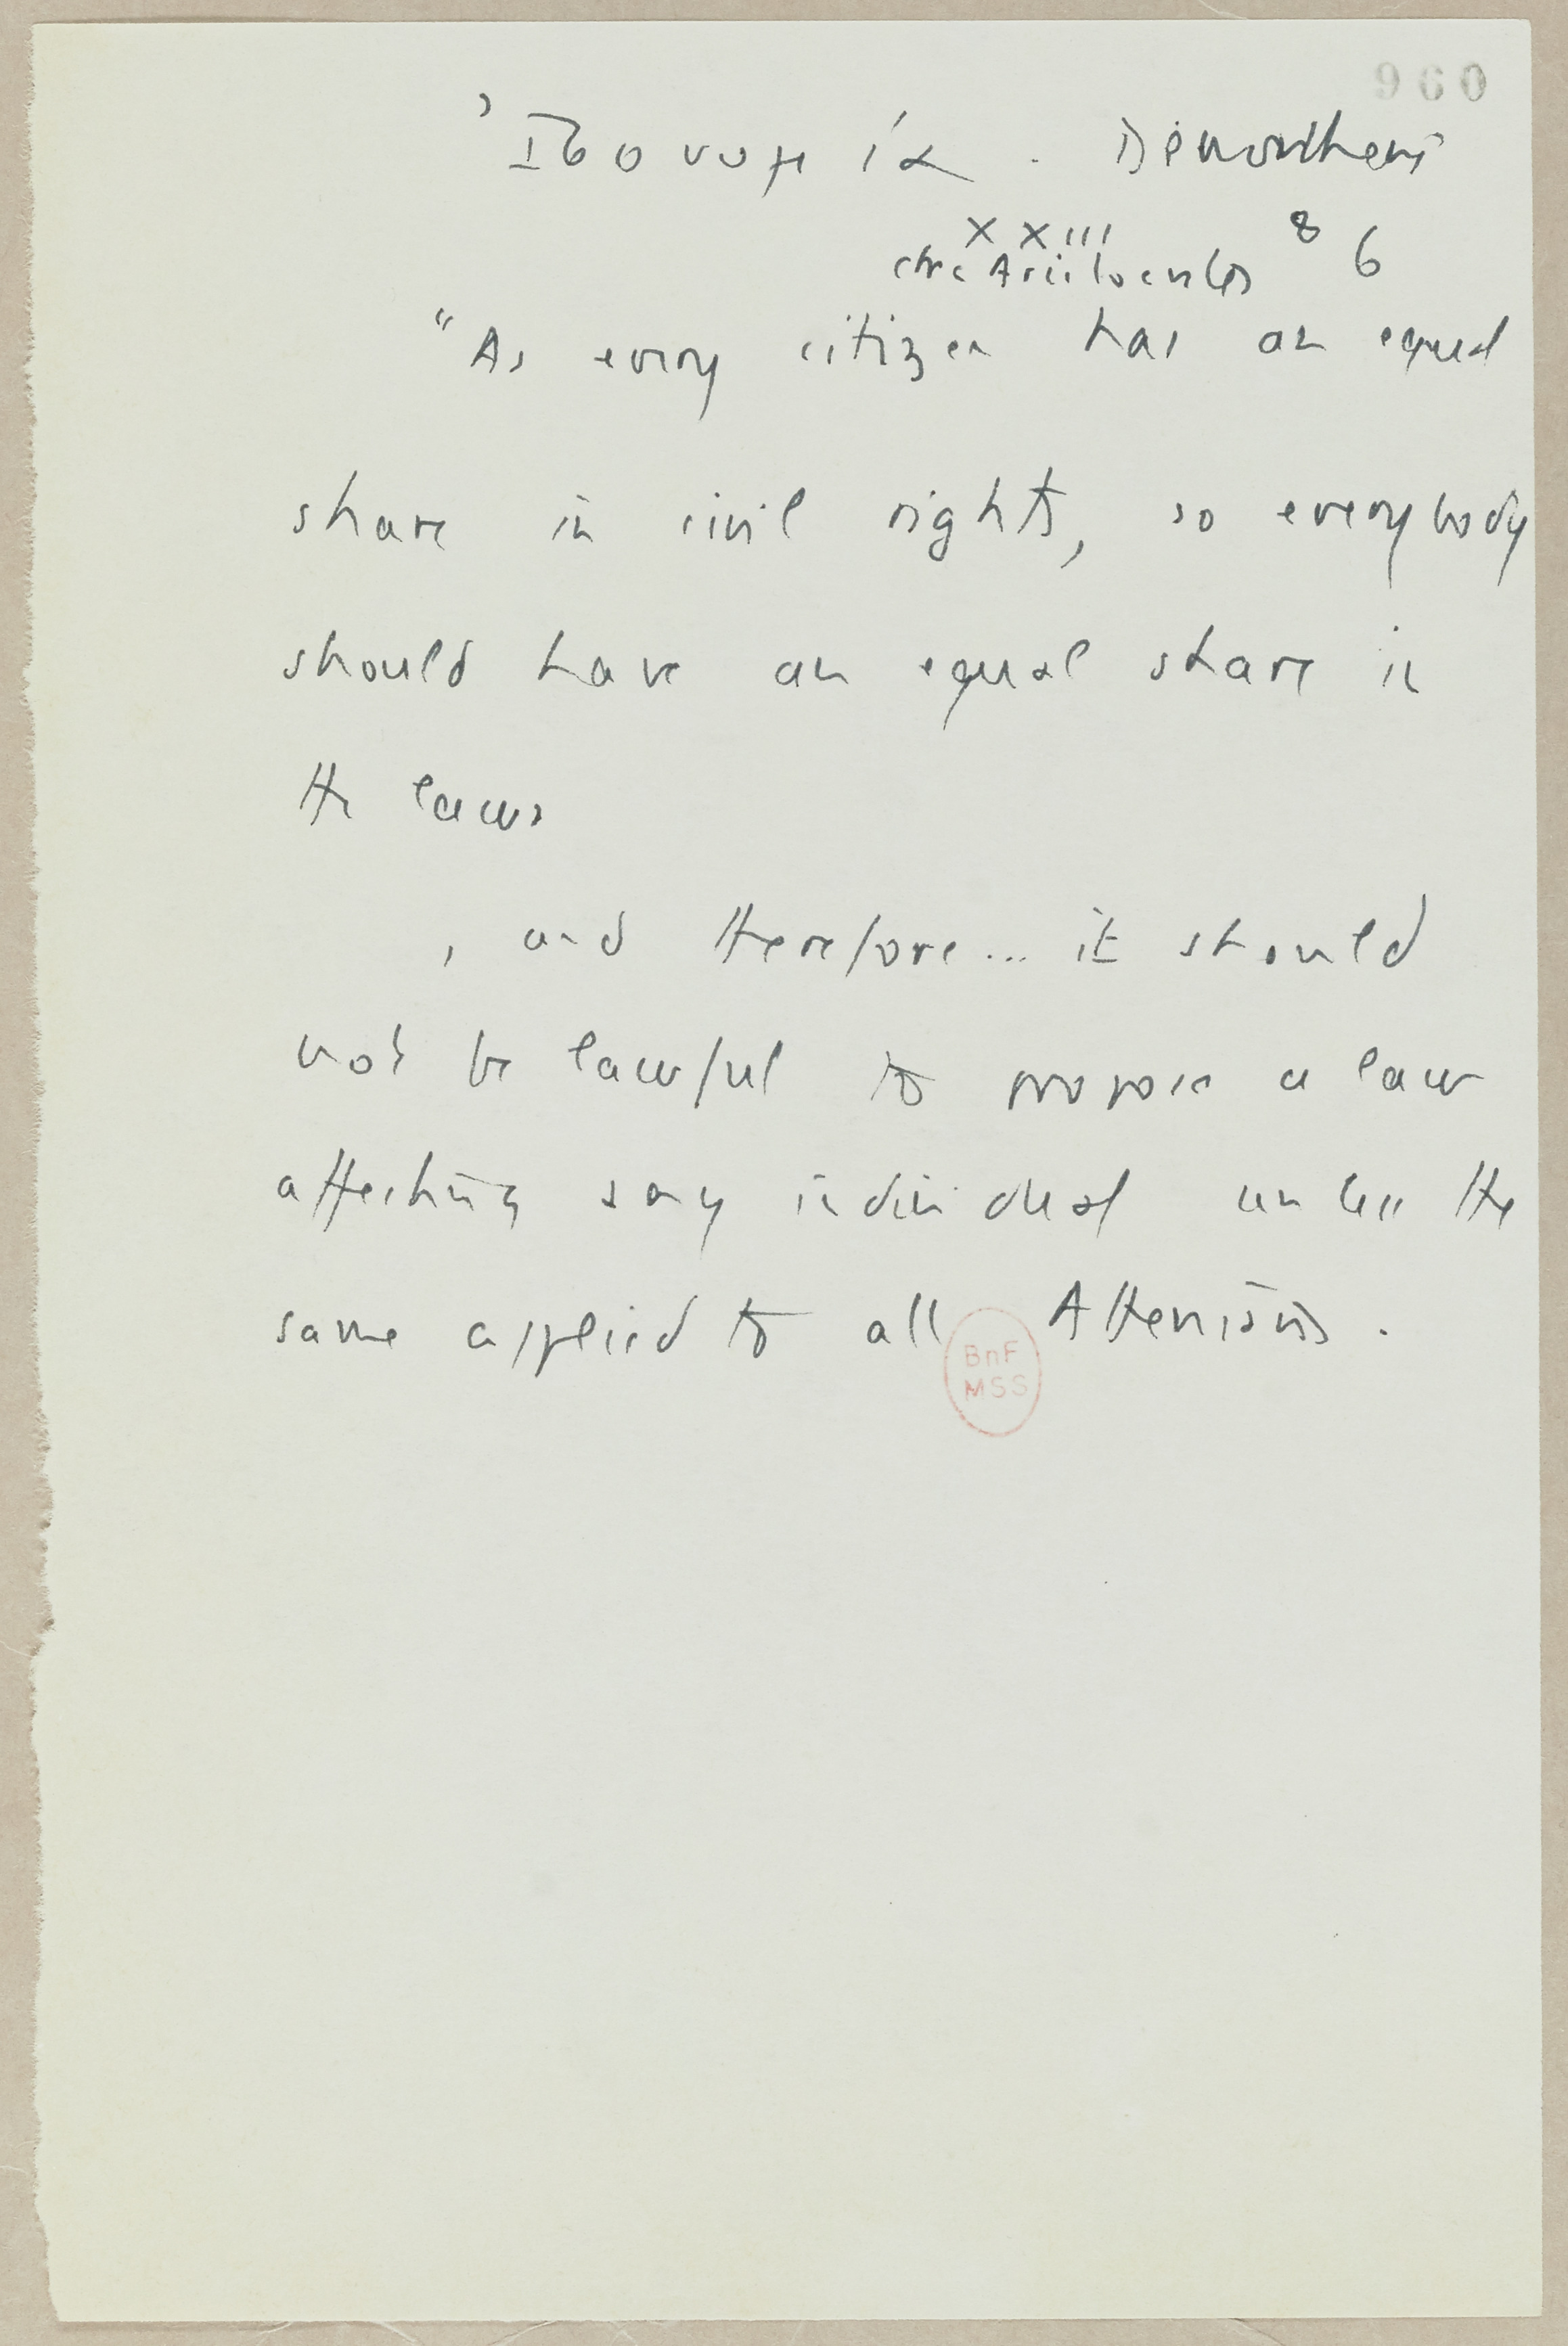 960
Ἰσονομία. Démosthène
XXIII 86
ctre Aristocrates
"As every citizen has an equal
share in civil rights, so everybody
should have an equal share in
the laws
, and therefore... it should
not be lawful to propose a law
affecting any individual unless the
same applied to all Athenians.
BnF
MSS